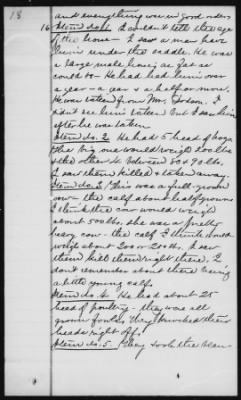 18
and everything was in good order
16 Item No. 1. I couldn't tell the age
of the horse - I saw a man have
him under the saddle. He was
a large male being as fat as
could be - He had had him over
a year - a year & a half or more.
He was taken from Mr. I
didn't see him taken but I saw him
after he was taken.
Item No. 2. He had 5 head of hogs
the big one would weigh 200 lbs
& the other 4 between 50 & 90 lbs.
I saw them killed & taken away.
Item No. 3. This was a full-grown
cow - the calf about half grown
I think the cow would weigh
about 500 lbs. She was a pretty
heavy cow - the calf I think would
weigh about 200 or 250 lbs. I saw
them kill them right there. I
don't remember about there being
a little young calf.
Item No. 4. He had about 25
head of poultry - they was all
grown fowls. They knocked their
heads right off.
Item No. 5. They took the